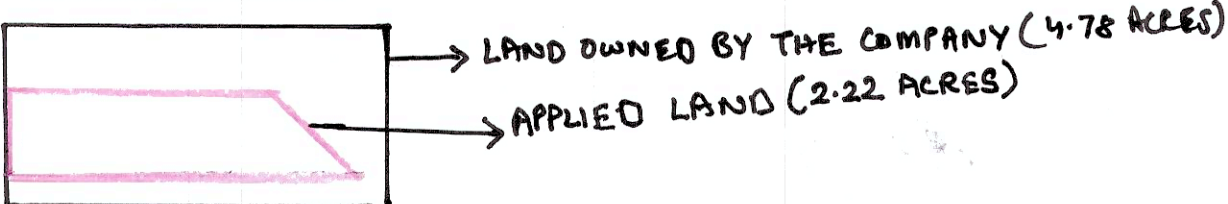 LAND OWNED BY THE COMPANY (4.78 ACRES)
APPLIED LAND (2.22 ACRES)